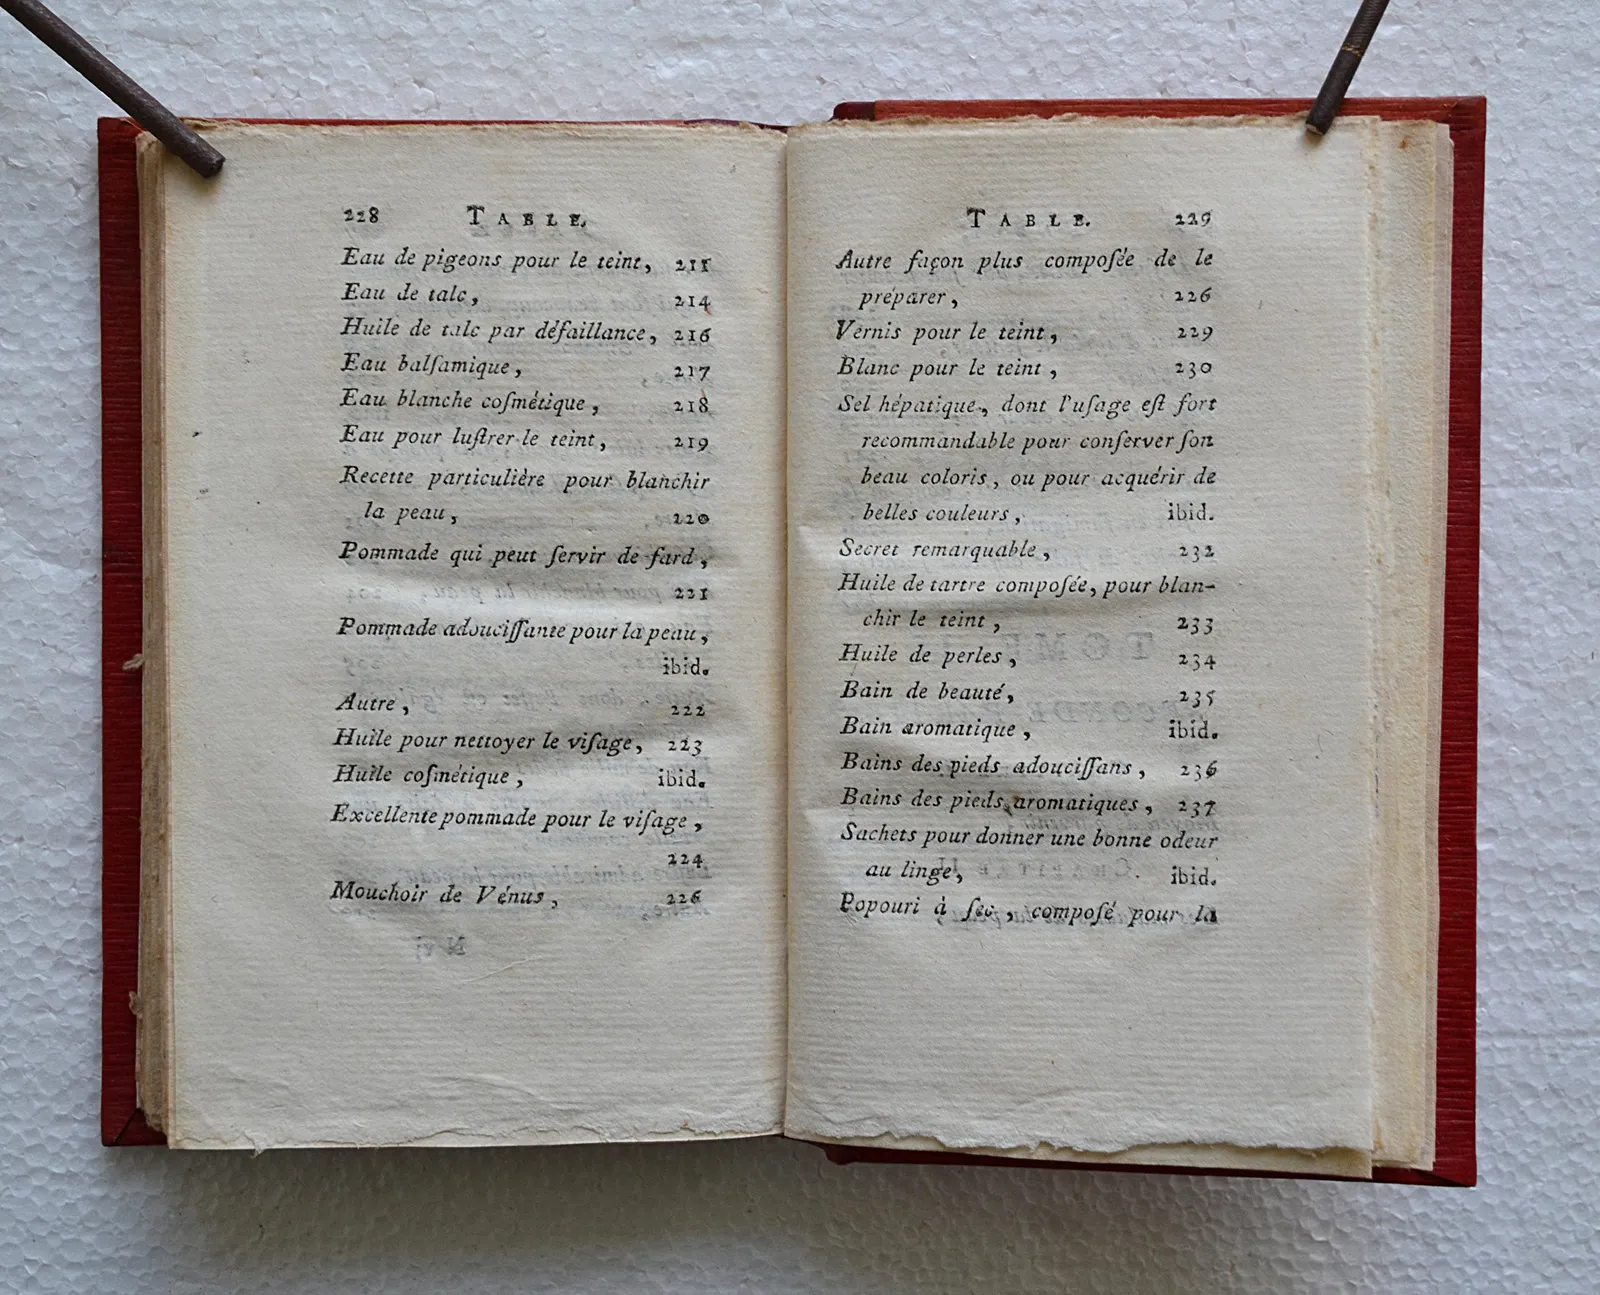 228 TABLE.
Eau de pigeons pour le teint, 211
Eau de talc, 214
Huile de talc par défaillance, 216
Eau balſamique, 217
Eau blanche coſmétique, 218
Eau pour luſtrer le teint, 219
Recette particulière pour blanchir
la peau, 220
Pommade qui peut ſervir de fard,
221
Pommade adouciſſante pour la peau,
ibid.
Autre, 222
Huile pour nettoyer le viſage, 223
Huile coſmétique, ibid.
Excellente pommade pour le viſage,
224
Mouchoir de Vénus, 226
TABLE. 229
Autre façon plus compoſée de le
préparer, 226
Vernis pour le teint, 229
Blanc pour le teint, 230
Sel hépatique, dont l'uſage eſt fort
recommandable pour conſerver ſon
beau coloris, ou pour acquérir de
belles couleurs, ibid.
Secret remarquable, 232
Huile de tartre compoſée, pour blan-
chir le teint, 233
Huile de perles, 234
Bain de beauté, 235
Bain aromatique, ibid.
Bains des pieds adouciſſans, 236
Bains des pieds aromatiques, 237
Sachets pour donner une bonne odeur
au linge, ibid.
Popouri à ſec, compoſé pour la